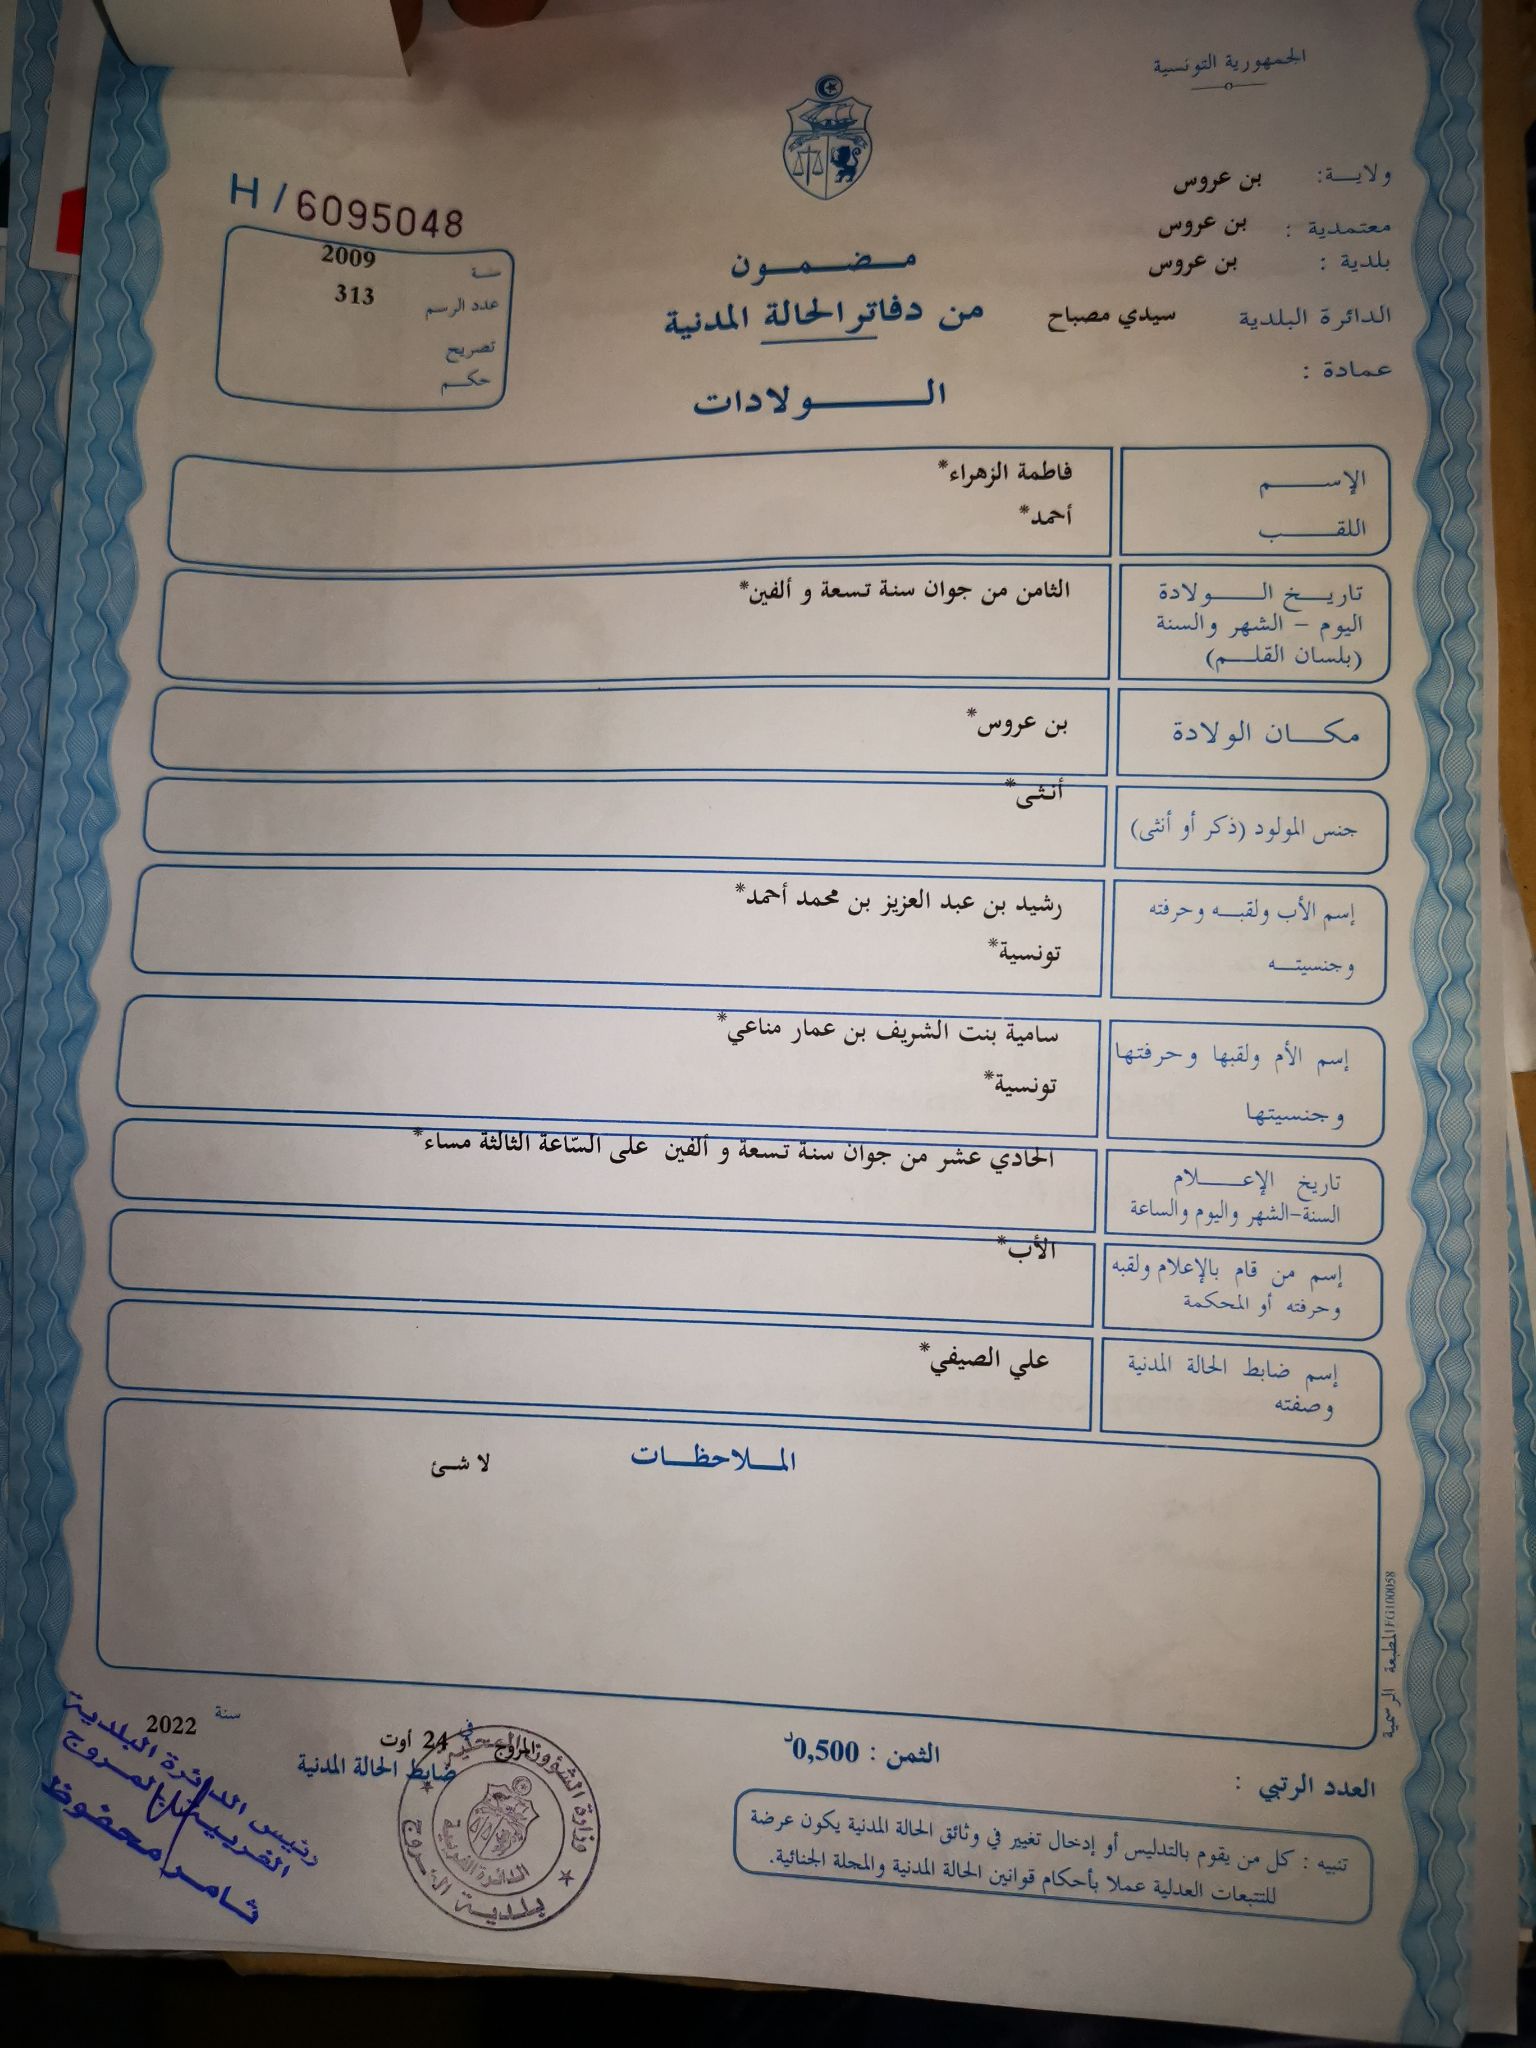 الجمهورية التونسية
ولايـــة: بن عروس
معتمدية : بن عروس
بلدية : بن عروس
الدائرة البلدية سيدي مصباح
عمادة :
مـضـمـون
من دفاتر الحالة المدنية
الـــولادات
H / 6095048
سنة 2009
عدد الرسم 313
تصريح
حكـم
الإســـم فاطمة الزهراء*
اللقـــب أحمد*
تاريـخ الـــولادة الثامن من جوان سنة تسعة و ألفين*
اليوم – الشهر والسنة
(بلسان القلـــم)
مكـــان الولادة بن عروس*
جنس المولود (ذكر أو أنثى) أنثى*
إسم الأب ولقبـه وحرفته رشيد بن عبد العزيز بن محمد أحمد*
وجنسيتـــه تونسية*
إسم الأم ولقبها وحرفتها سامية بنت الشريف بن عمار مناعي*
وجنسيتها تونسية*
تاريخ الإعـــلام الحادي عشر من جوان سنة تسعة و ألفين على السّاعة الثالثة مساء*
السنة-الشهر واليوم والساعة
إسم من قام بالإعلام ولقبه الأب*
وحرفته أو المحكمة
إسم ضابط الحالة المدنية علي الصيفي*
وصفته
المــلاحظــات لا شئ
المطبعة الرسمية FG100058
الثمن : 0,500د
المروج في 24 أوت سنة 2022
ضابط الحالة المدنية
العدد الرتبي :
تنبيه : كل من يقوم بالتدليس أو إدخال تغيير في وثائق الحالة المدنية يكون عرضة
للتتبعات العدلية عملا بأحكام قوانين الحالة المدنية والمجلة الجنائية.
وزارة الشؤون المحلية
الدائرة الغربية
بلدية المروج
رئيس الدائرة البلدية
الغربية بالمروج
ثامر محفوظ